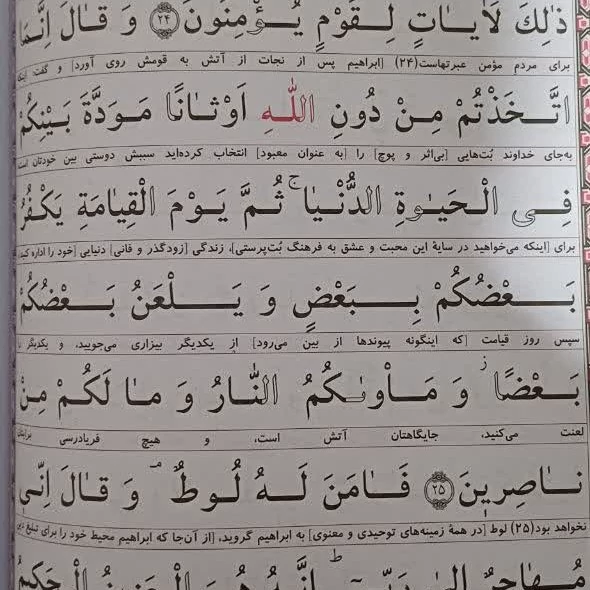 ذٰلِكَ لَاٰيَاتٍ لِقَوْمٍ يُؤْمِنُونَ ﴿۲۴﴾ وَ قَالَ اِنَّمَا
برای مردم مؤمن عبرتهاست(۲۴) [ابراهیم پس از نجات از آتش به قومش روی آورد] و گفت: اینکه
اتَّخَذْتُمْ مِنْ دُونِ اللّٰهِ اَوْثَانًا مَوَدَّةَ بَيْنِكُمْ
به‌جای خداوند بُت‌هایی [بی‌اثر و پوچ] را [به عنوان معبود] انتخاب کرده‌اید سببش دوستی بین خودتان است
فِى الْحَيٰوةِ الدُّنْيَا ۚ ثُمَّ يَوْمَ الْقِيَامَةِ يَكْفُرُ
برای [اینکه می‌خواهید در سایهٔ این محبت و عشق به فرهنگ بُت‌پرستی]، زندگی [زودگذر و فانی] دنیایی [خود را اداره کنید]
بَعْضُكُمْ بِبَعْضٍ وَ يَلْعَنُ بَعْضُكُمْ
سپس روز قیامت [که اینگونه پیوندها از بین می‌رود] از یکدیگر بیزاری می‌جویید، و یکدیگر را
بَعْضًا ز وَ مَاْوٰىكُمُ النَّارُ وَ مَا لَكُمْ مِنْ
لعنت می‌کنید، جایگاهتان آتش است، و هیچ فریادرسی برایتان
نَاصِرِينَ ﴿۲۵﴾ فَاٰمَنَ لَهُ لُوطٌ ۘ وَ قَالَ اِنِّى
نخواهد بود(۲۵) لوط [در همهٔ زمینه‌های توحیدی و معنوی] به ابراهیم گروید، [از آن‌جا که ابراهیم محیط خود را برای تبلیغ دین
مُهَاجِرٌ اِلٰى رَبِّى ۖ اِنَّهُ هُوَ الْعَزِيزُ الْحَكِيمُ